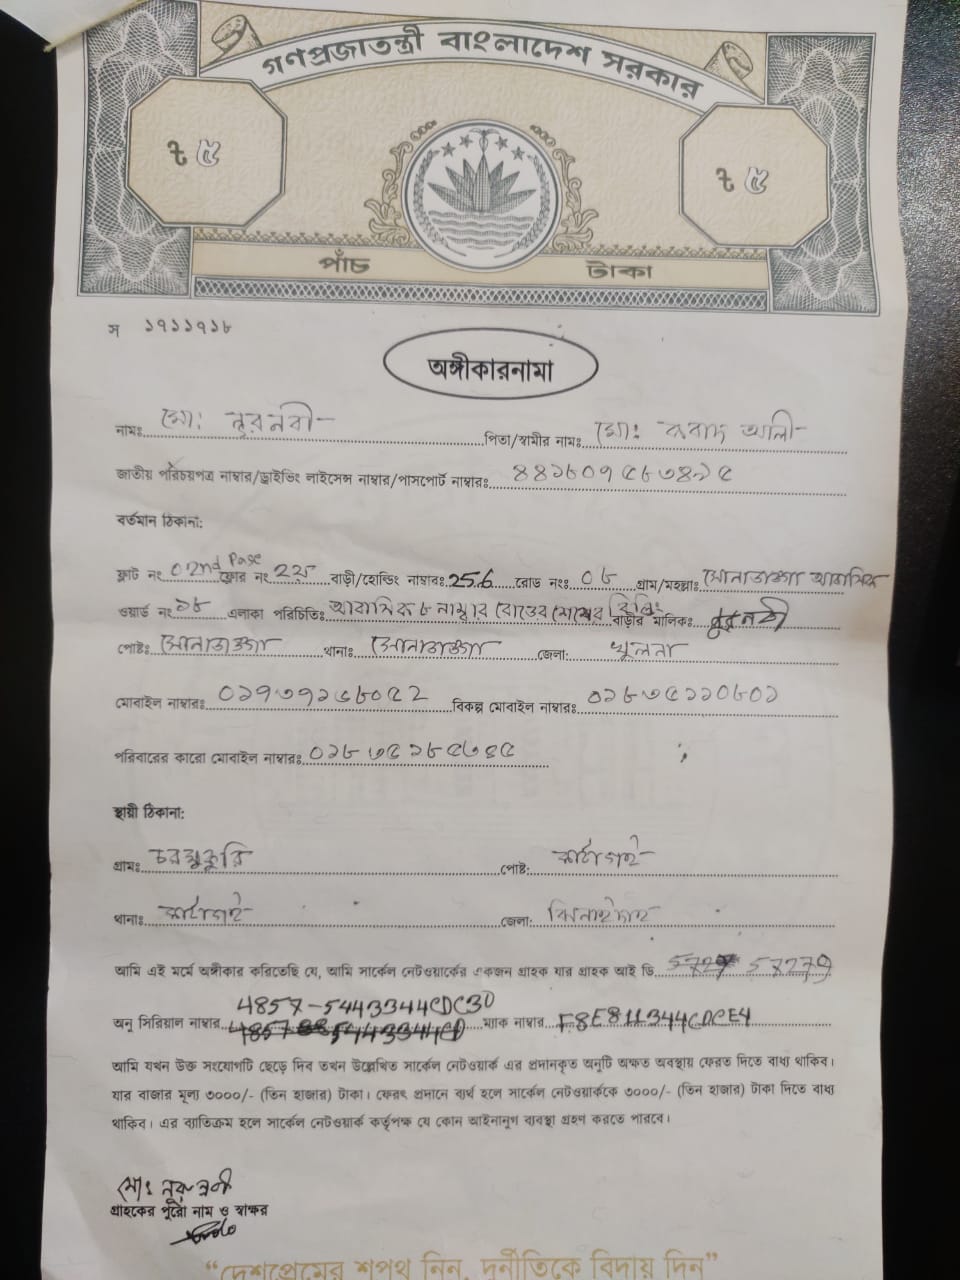 গণপ্রজাতন্ত্রী বাংলাদেশ সরকার
৳ ৫ ৳ ৫
পাঁচ টাকা
স ১৭১১৭১৮
অঙ্গীকারনামা
নামঃ মোঃ নুরনবী পিতা/স্বামীর নামঃ মোঃ আলী
জাতীয় পরিচয়পত্র নাম্বার/ড্রাইভিং লাইসেন্স নাম্বার/পাসপোর্ট নাম্বারঃ
বর্তমান ঠিকানা:
ফ্লাট নং 02nd Pase ফ্লোর নং বাড়ী/হোল্ডিং নাম্বারঃ 256 রোড নংঃ ০৮ গ্রাম/মহল্লাঃ সোনাডাঙ্গা আবাসিক
ওয়ার্ড নং ১৮ এলাকা পরিচিতিঃ আবাসিক ৮ নাম্বার রোডের শেষের বাড়ীর মালিকঃ নুরনবী
পোষ্টঃ সোনাডাঙ্গা থানাঃ সোনাডাঙ্গা জেলা: খুলনা
মোবাইল নাম্বারঃ বিকল্প মোবাইল নাম্বারঃ
পরিবারের কারো মোবাইল নাম্বারঃ
স্থায়ী ঠিকানা:
গ্রামঃ পোষ্ট:
থানাঃ জেলা: ঝিনাইদাহ
আমি এই মর্মে অঙ্গীকার করিতেছি যে, আমি সার্কেল নেটওয়ার্কের একজন গ্রাহক যার গ্রাহক আই ডি 57279
অনু সিরিয়াল নাম্বার 4857-5443344CDC30 ম্যাক নাম্বার F8E811344CDCE4
আমি যখন উক্ত সংযোগটি ছেড়ে দিব তখন উল্লেখিত সার্কেল নেটওয়ার্ক এর প্রদানকৃত অনুটি অক্ষত অবস্থায় ফেরত দিতে বাধ্য থাকিব।
যার বাজার মূল্য ৩০০০/- (তিন হাজার) টাকা। ফেরৎ প্রদানে ব্যর্থ হলে সার্কেল নেটওয়ার্ককে ৩০০০/- (তিন হাজার) টাকা দিতে বাধ্য
থাকিব। এর ব্যতিক্রম হলে সার্কেল নেটওয়ার্ক কর্তৃপক্ষ যে কোন আইনানুগ ব্যবস্থা গ্রহণ করতে পারবে।
মোঃ নুরনবী
গ্রাহকের পুরো নাম ও স্বাক্ষর
“দেশপ্রেমের শপথ নিন, দুর্নীতিকে বিদায় দিন”